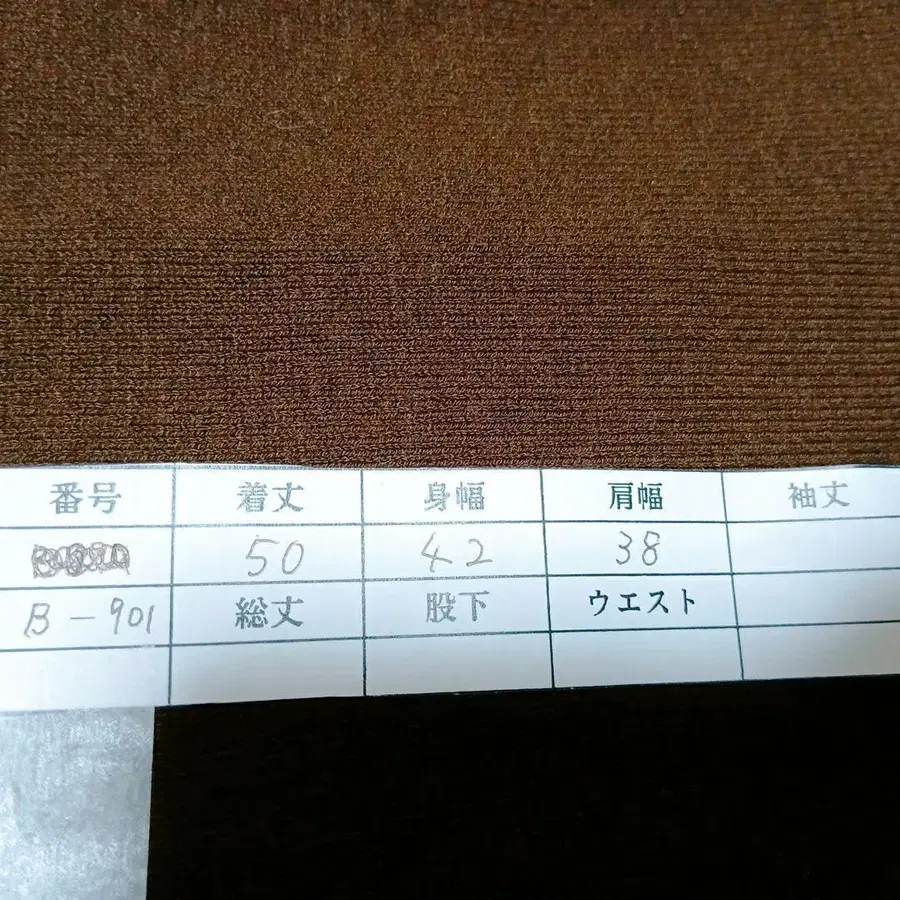 番号 着丈 身幅 肩幅 袖丈
50 42 38
B-901 総丈 股下 ウエスト